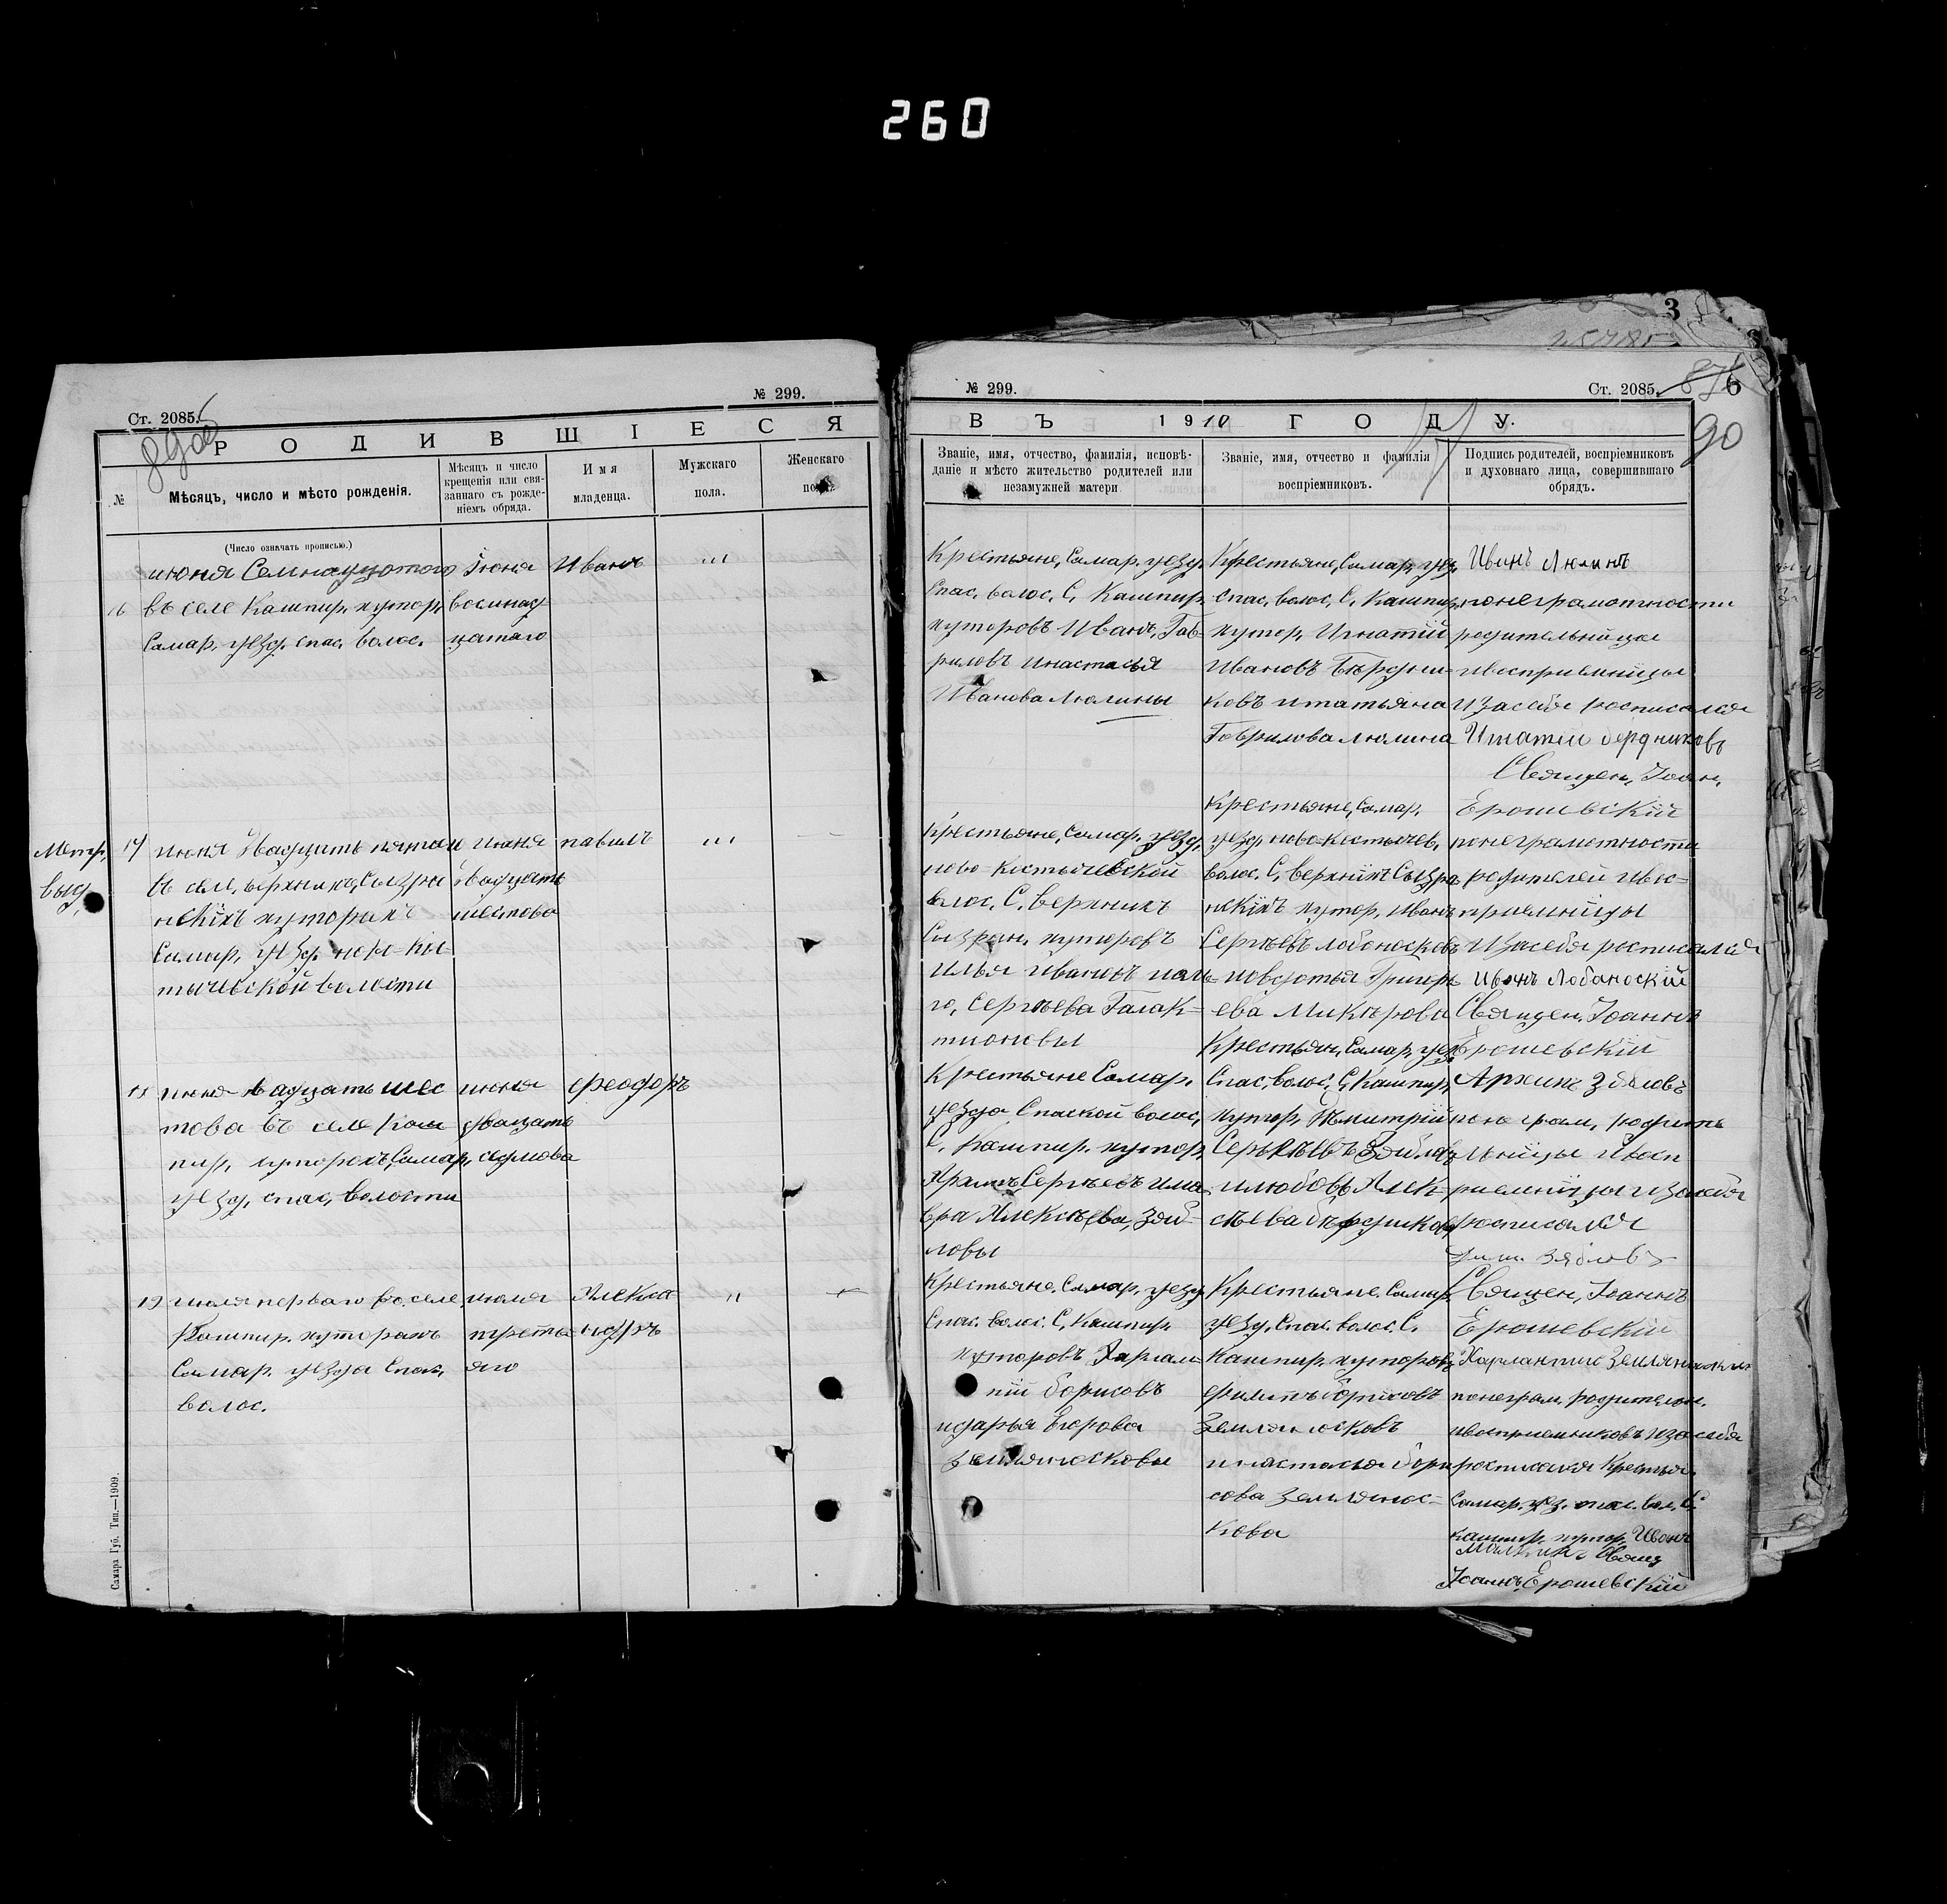 260
3
Ст. 2085.
№ 299.
Р О Д И В Ш І Е С Я
№
Мѣсяцъ, число и мѣсто рожденія.
Мѣсяцъ и число крещенія или связаннаго съ рожденіемъ обряда.
Имя младенца.
Мужскаго пола.
Женскаго
(Число означать прописью.)
16
июня Семнацотого
въ селе Кашпир. хутор,
Самар, уезд, спас, волос.
Іюня
восмнад
цатаго
Иванъ
Метр,
выд,
17
июня двадцать пятаго
въ селе, верхнихъ, Сызра
нскихъ хуторахъ
Самар, уезд,
тычевской волости
июня
двадцать
шестова
павилъ
18
июня двадцать шес
това въ селе Каш
пир, хуторахъ, Самар,
уезд, спас, волости
июня
двацать
седмова
феодоръ
19
июля первого во, селе,
Кашпир. хуторахъ
Самар. уезда Спас,
волос.
июля
треть
яго
Алекса
ндръ
Самара Губ. Тип.—1909.
№ 299.
Ст. 2085.
6
90
В Ъ 1910 Г О Д У.
Званіе, имя, отчество, фамилія, исповѣданіе и мѣсто жительство родителей или незамужней матери
Званіе, имя, отчество и фамилія воспріемниковъ.
Подпись родителей, воспріемниковъ и духовнаго лица, совершившаго обрядъ.
Крестьяне, Самар. уезд,
Спас, волос, С, Кашпир.
хуторовъ Иванъ, Гав-
риловъ инастасья
Иванова Люлины
Крестьяне, Самар, уез,
Спас, волос, С, Кашпир,
хутор, Игнатій
Ивановъ Бѣрдни-
ковъ итатьяна
Гаврилова люлина
Иванъ Люлинъ
понеграмотности
родительницы
ивосприемницы
изасебя росписался
Игнатий бердниковъ
Священ, Іоан,
Ерошевскій
Крестьяне, Самар, уезд,
ново-Костычевской
волос, С, верхнихъ
Сызран, хуторовъ
Илья Ивановъ
го, Сергѣева Галак-
тионовы
Крестьяне, Самар,
уезд, ново-Костычев,
волос, С, верхнихъ Сызра
нскихъ хутор, Иванъ
Сергѣевъ лобоносковъ
Григорь
ева Микѣрова
понеграмотности
родителей ивос-
приемницы
изасебя росписался
Иванъ Лобаноскій
Священ, Іоаннъ
Ерошевскій
Крестьяне Самар,
уезда Спаской волос,
С, Кашпир. хутор,
Архипъ Сергѣевъ има
вра Алексѣева, Зяб-
ловы
Крестьян, Самар, уез,
Спас, волос, С, Кашпир,
хутор, Дмитрий
Сергѣевъ Зяблов
илюбовь Алек-
сѣева бѣрдникова
Архипъ Зяблов
поне грам, родите
льницы ивосп
риемницы изасебя
росписался
Зябловъ
Священ, Іоаннъ
Ерошевскій
Крестьяне, Самар, уезд,
Спас. волос. С, Кашпир.
хуторовъ Харлам-
пій борисовъ
идарья Егорова
земляносковы
Крестьяне, Самар,
уезд, Спас. волос. С.
Кашпир. хуторовъ
филипъ борисовъ
Земляносковъ
инастасья бори
сова земляно с-
кова
понеграм, родителей,
ивосприемниковъ изасебя
росписался Крестья,
Самар. уез. спас. вол. С.
кашпир, хутор, Иванъ
Свящ
Іоаннъ, Ерошевскій